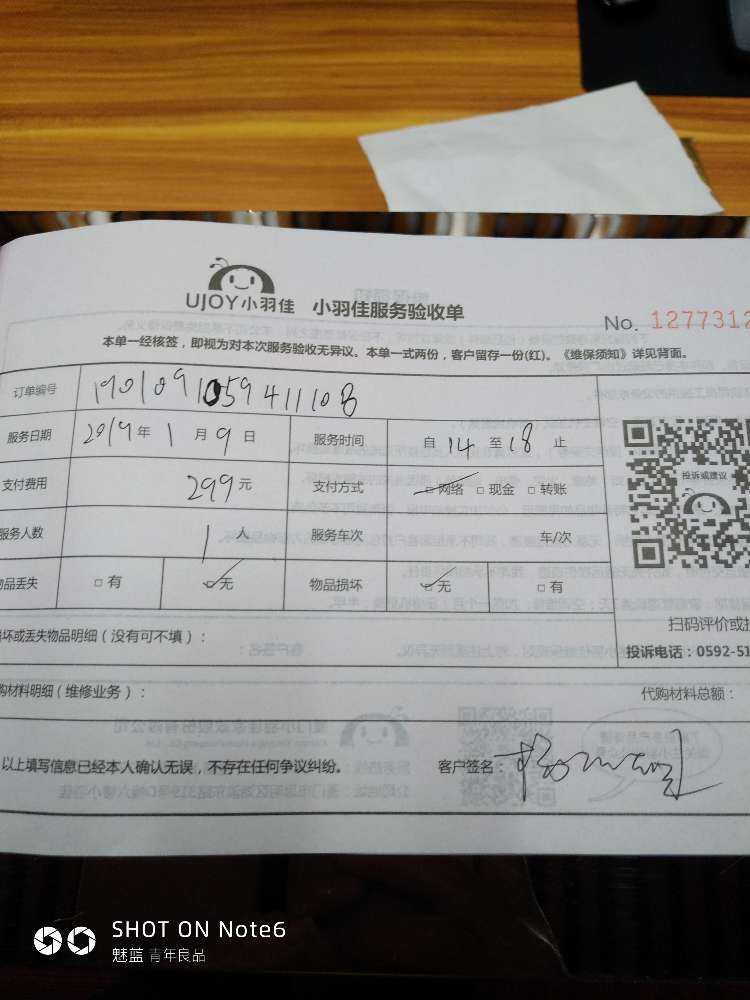 UJOY小羽佳 小羽佳服务验收单
No. 1277312
本单一经核签，即视为对本次服务验收无异议。本单一式两份，客户留存一份(红)。《维保须知》详见背面。
订单编号 1901091059411108
服务日期 2019年1月9日 服务时间 自14至18止
支付费用 299元 支付方式 □网络 □现金 □转账
服务人数 1人 服务车次 车/次
品丢失 □有 □无 物品损坏 □无 □有
投诉或建议
坏或丢失物品明细（没有可不填）：
扫码评价或
投诉电话：0592-51
购材料明细（维修业务）： 代购材料总额：
以上填写信息已经本人确认无误，不存在任何争议纠纷。 客户签名：
SHOT ON Note6
魅蓝 青年良品